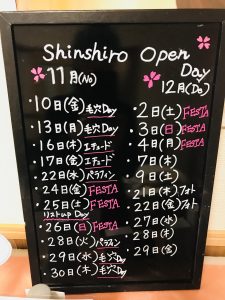 Shinshiro Open
Day
11月(No)
10日(金)毛穴Day
13日(月)毛穴Day
16日(木)エチュード
17日(金)エチュード
22日(水)パラフィン
24日(金)FESTA
25日(土)FESTA
リストup Day
26日(日)FESTA
28日(火)パラフィン
29日(水)毛穴Day
30日(木)毛穴Day
12月(De)
・2日(土)FESTA
・3日(日)FESTA
・4日(月)FESTA
・7日(木)
・9日(土)
・21日(木)フォト
・22日(金)フォト
・27日(水)
・28日(木)
・29日(金)